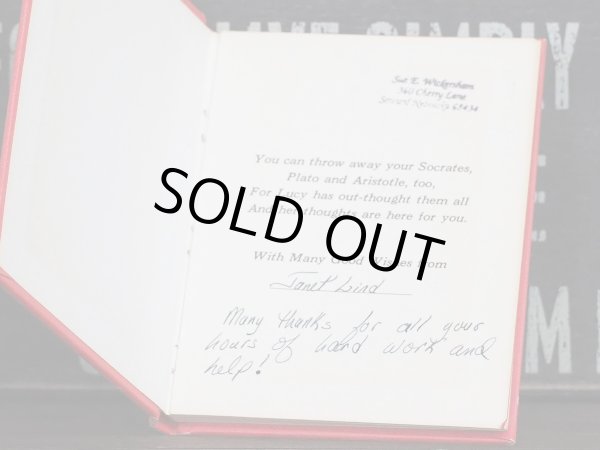 Sue E. Wickersham
340 Cherry Lane
Seward Nebraska 68434
You can throw away your Socrates,
Plato and Aristotle, too,
For Lucy has out-thought them all
And her thoughts are here for you.
SOLD OUT
With Many Good Wishes from
Janet Lind
Many thanks for all your
hours of hard work and
help!
SIMPLY